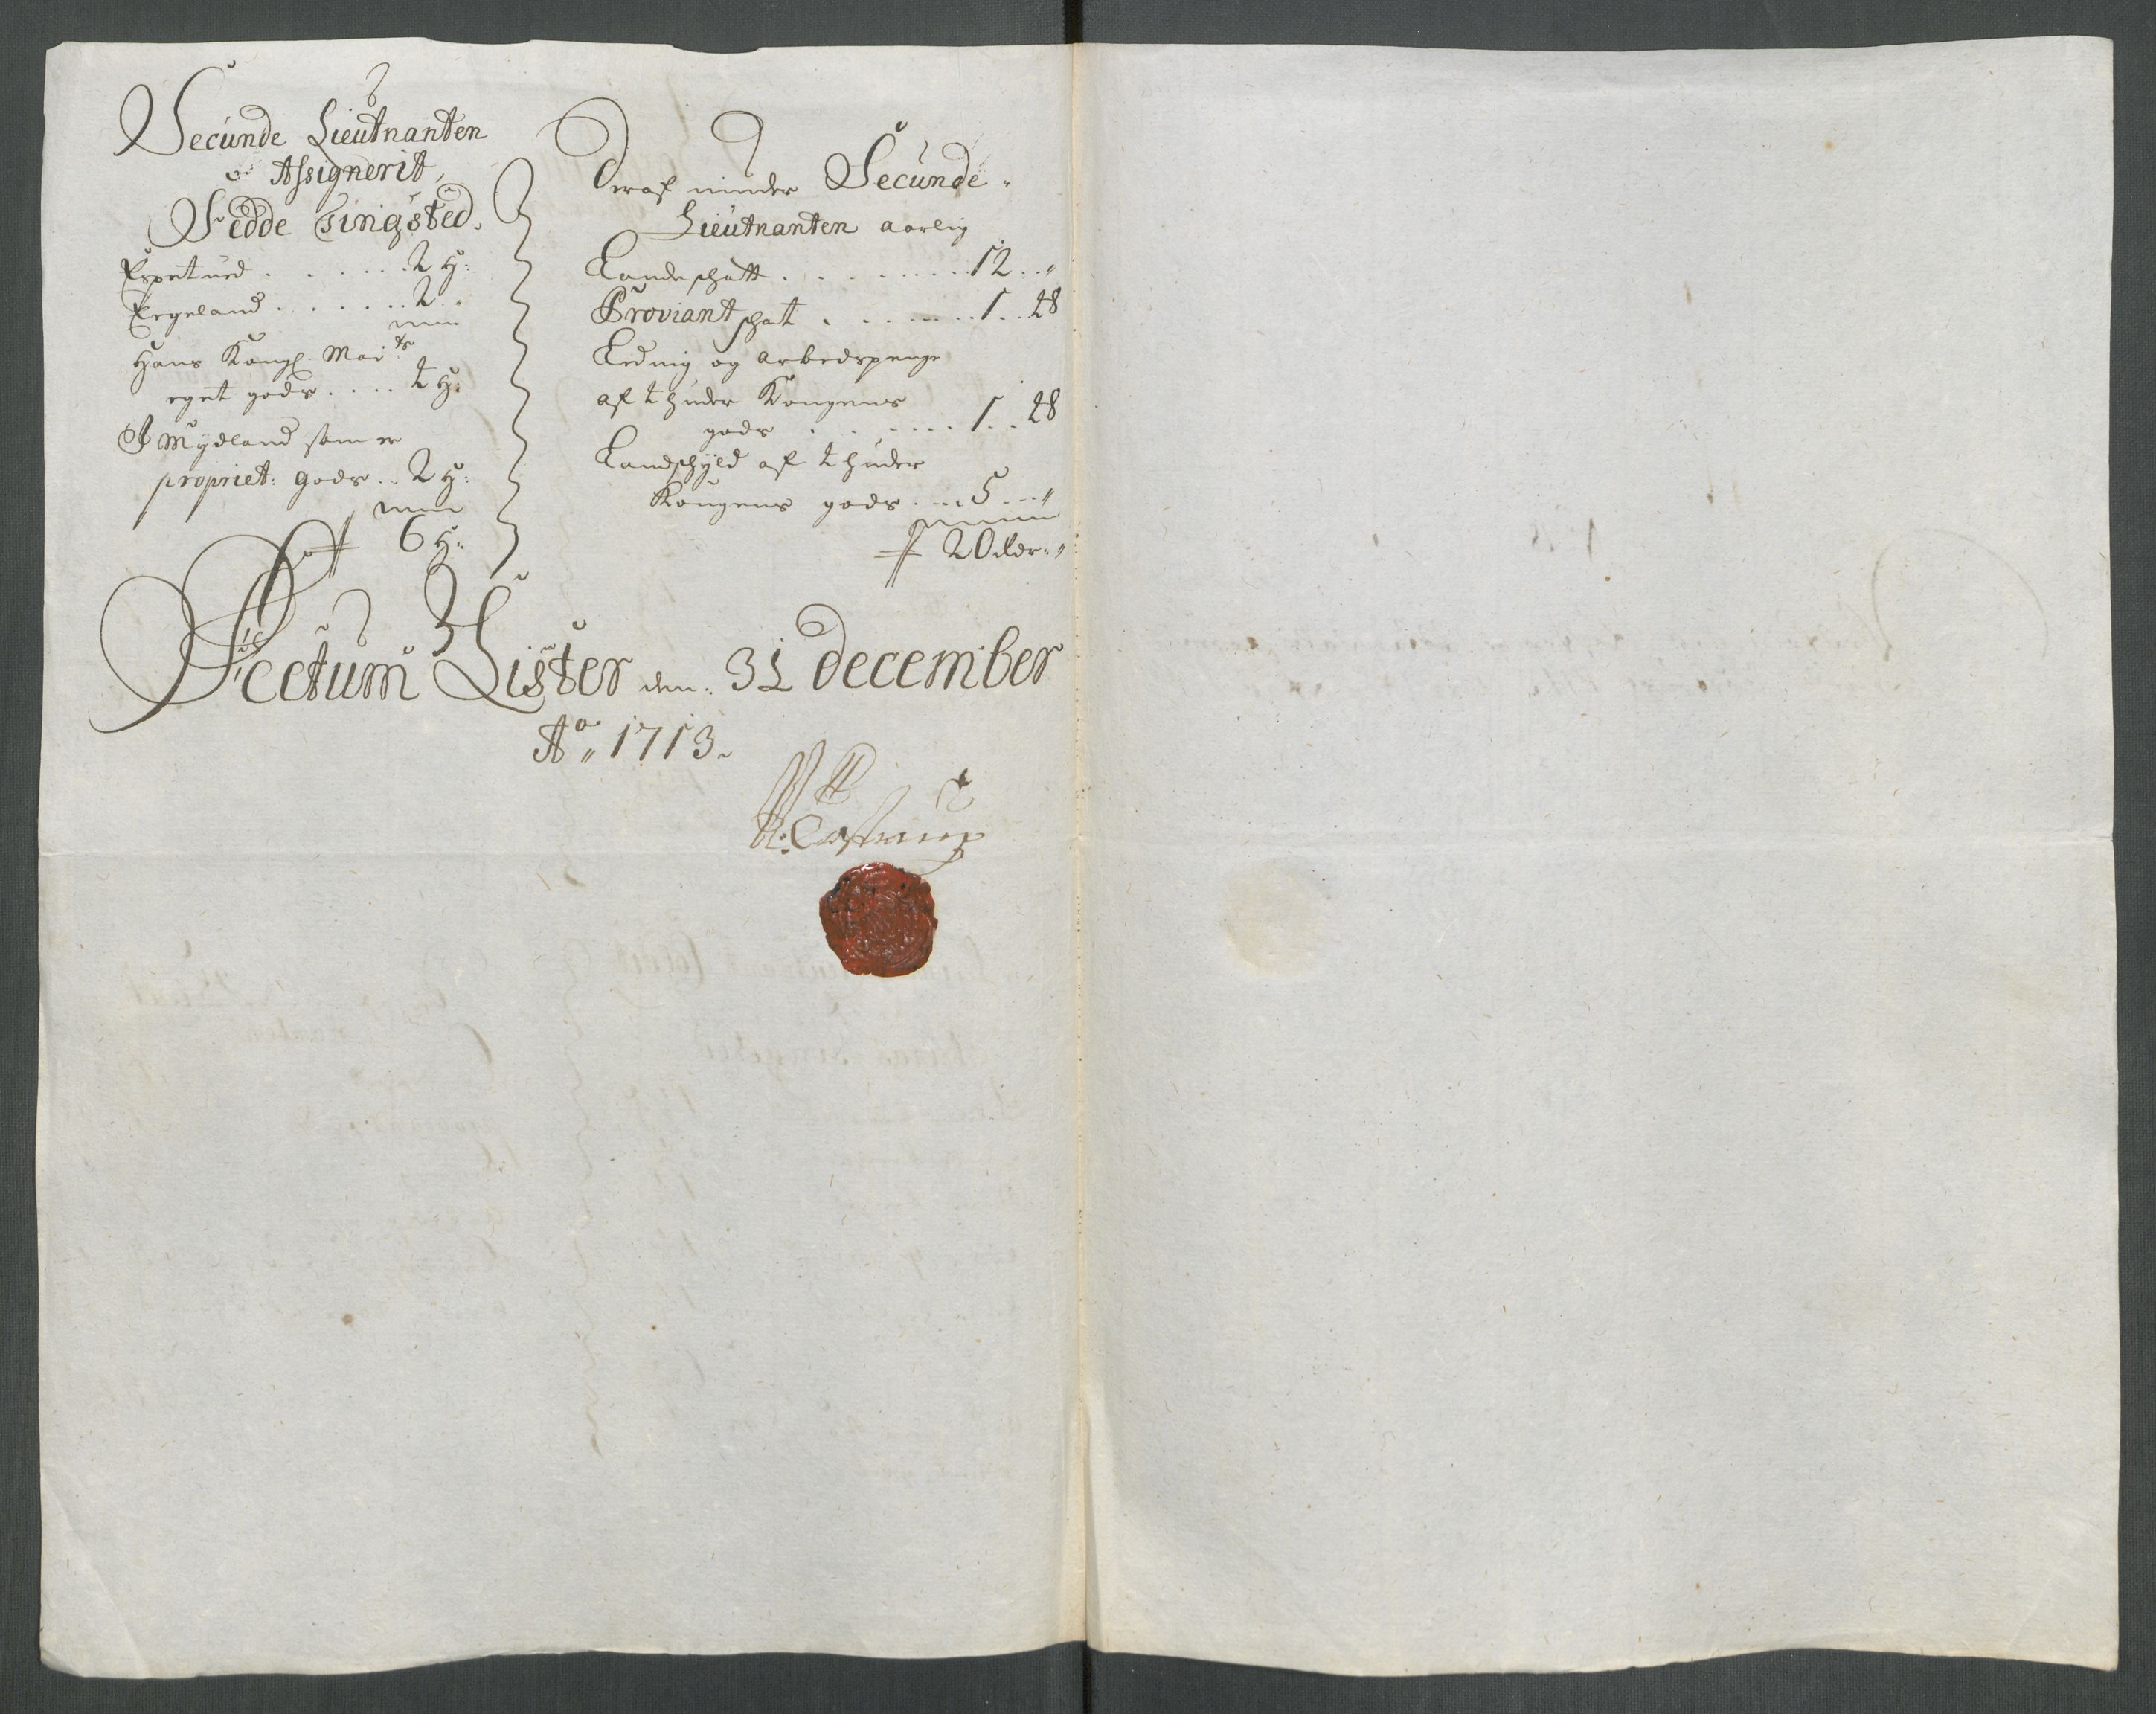 Secunde Lieutnanten
Assignerit,
Fedde Tingsted.
Espetued . . . . . . 2 H:
Ergeland . . . . . . 2 .
Hans Kongl. Mai:ts
eget gods . . . . 4 H:
I Mydland som er
propriet: gods . . 2 H:
6 H:
Deraf nÿder Secunde
Lieutnanten aarlig
Landschatt . . . . . . . . 12 . . "
Proviant schat . . . . . . . 1 . . 48
Ledning og arbedspenge
af 4 huder Kongens
gods . . . . . . . 1 . . 48
Landschyld af 4 huder
Kongens gods . . . 5 . . . "
20 dlr: "
Actum Lister den: 31 december
Ao„ 1713.